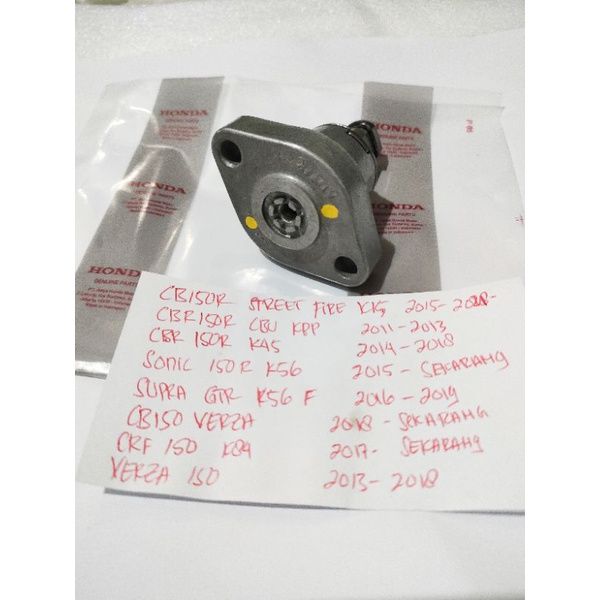 HONDA
GENUINE PARTS
HONDA
HONDA
GENUINE PARTS
HONDA
GENUINE PARTS
CB150R STREET FIRE K15 2015-2018-
CBR150R CBU KPP 2011-2013
CBR 150R K45 2014-2018
SONIC 150R K56 2015 - SEKARANG
SUPRA GTR K56 F 2016 - 2019
CB150 VERZA 2018 - SEKARANG
CRF 150 K84 2017- SEKARANG
VERZA 150 2013-2018